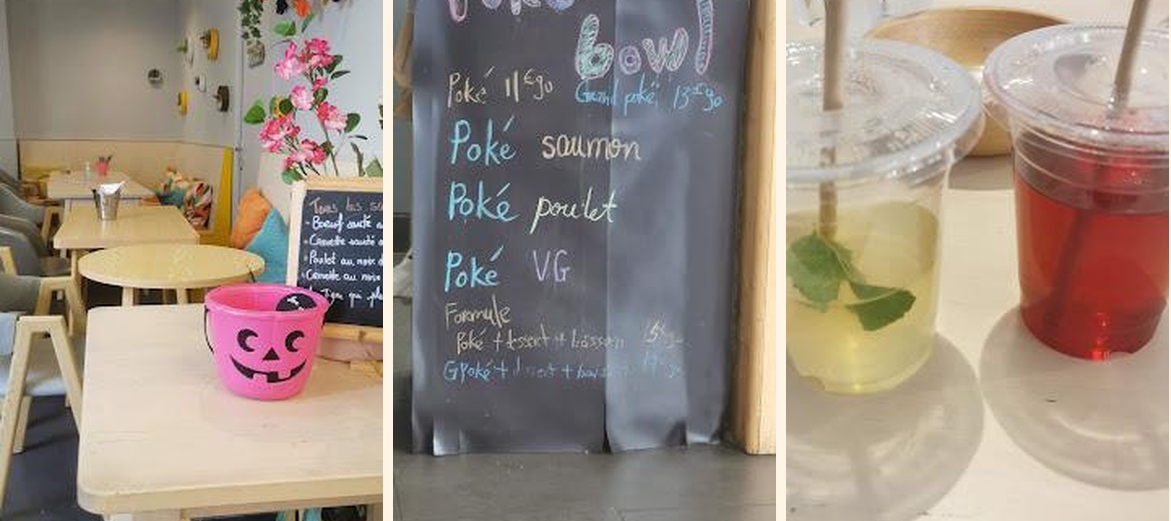 Tous les
Boeuf sauté
Crevette sauté
Poulet au noix d
Crevette au noix
Poké
bowl
Poké 11€90 Grand poké 13€90
Poké saumon
Poké poulet
Poké VG
Formule
Poké + dessert + boisson
GPoké + dessert +